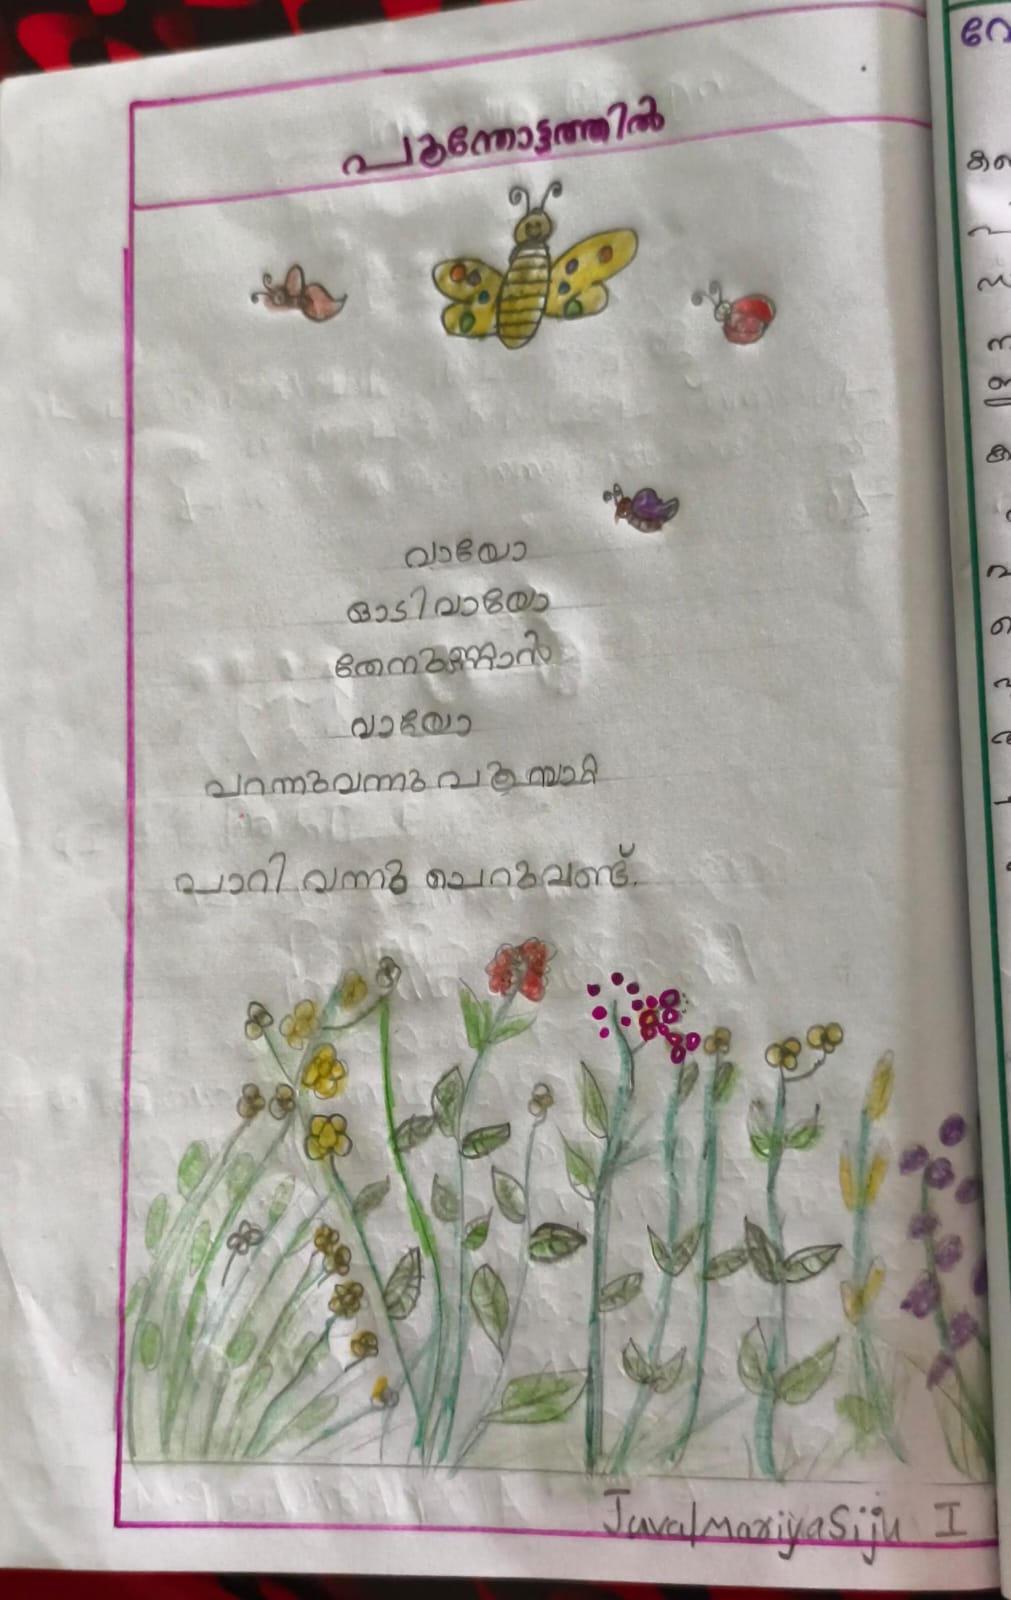 പൂന്തോട്ടത്തിൽ
വായോ
ഓടിവായോ
തേനുണ്ണാൻ
വായോ
പറന്നുവന്നു പൂമ്പാറ്റ
പാറി വന്നു ചെറുവണ്ട്.
MariyaSiju I